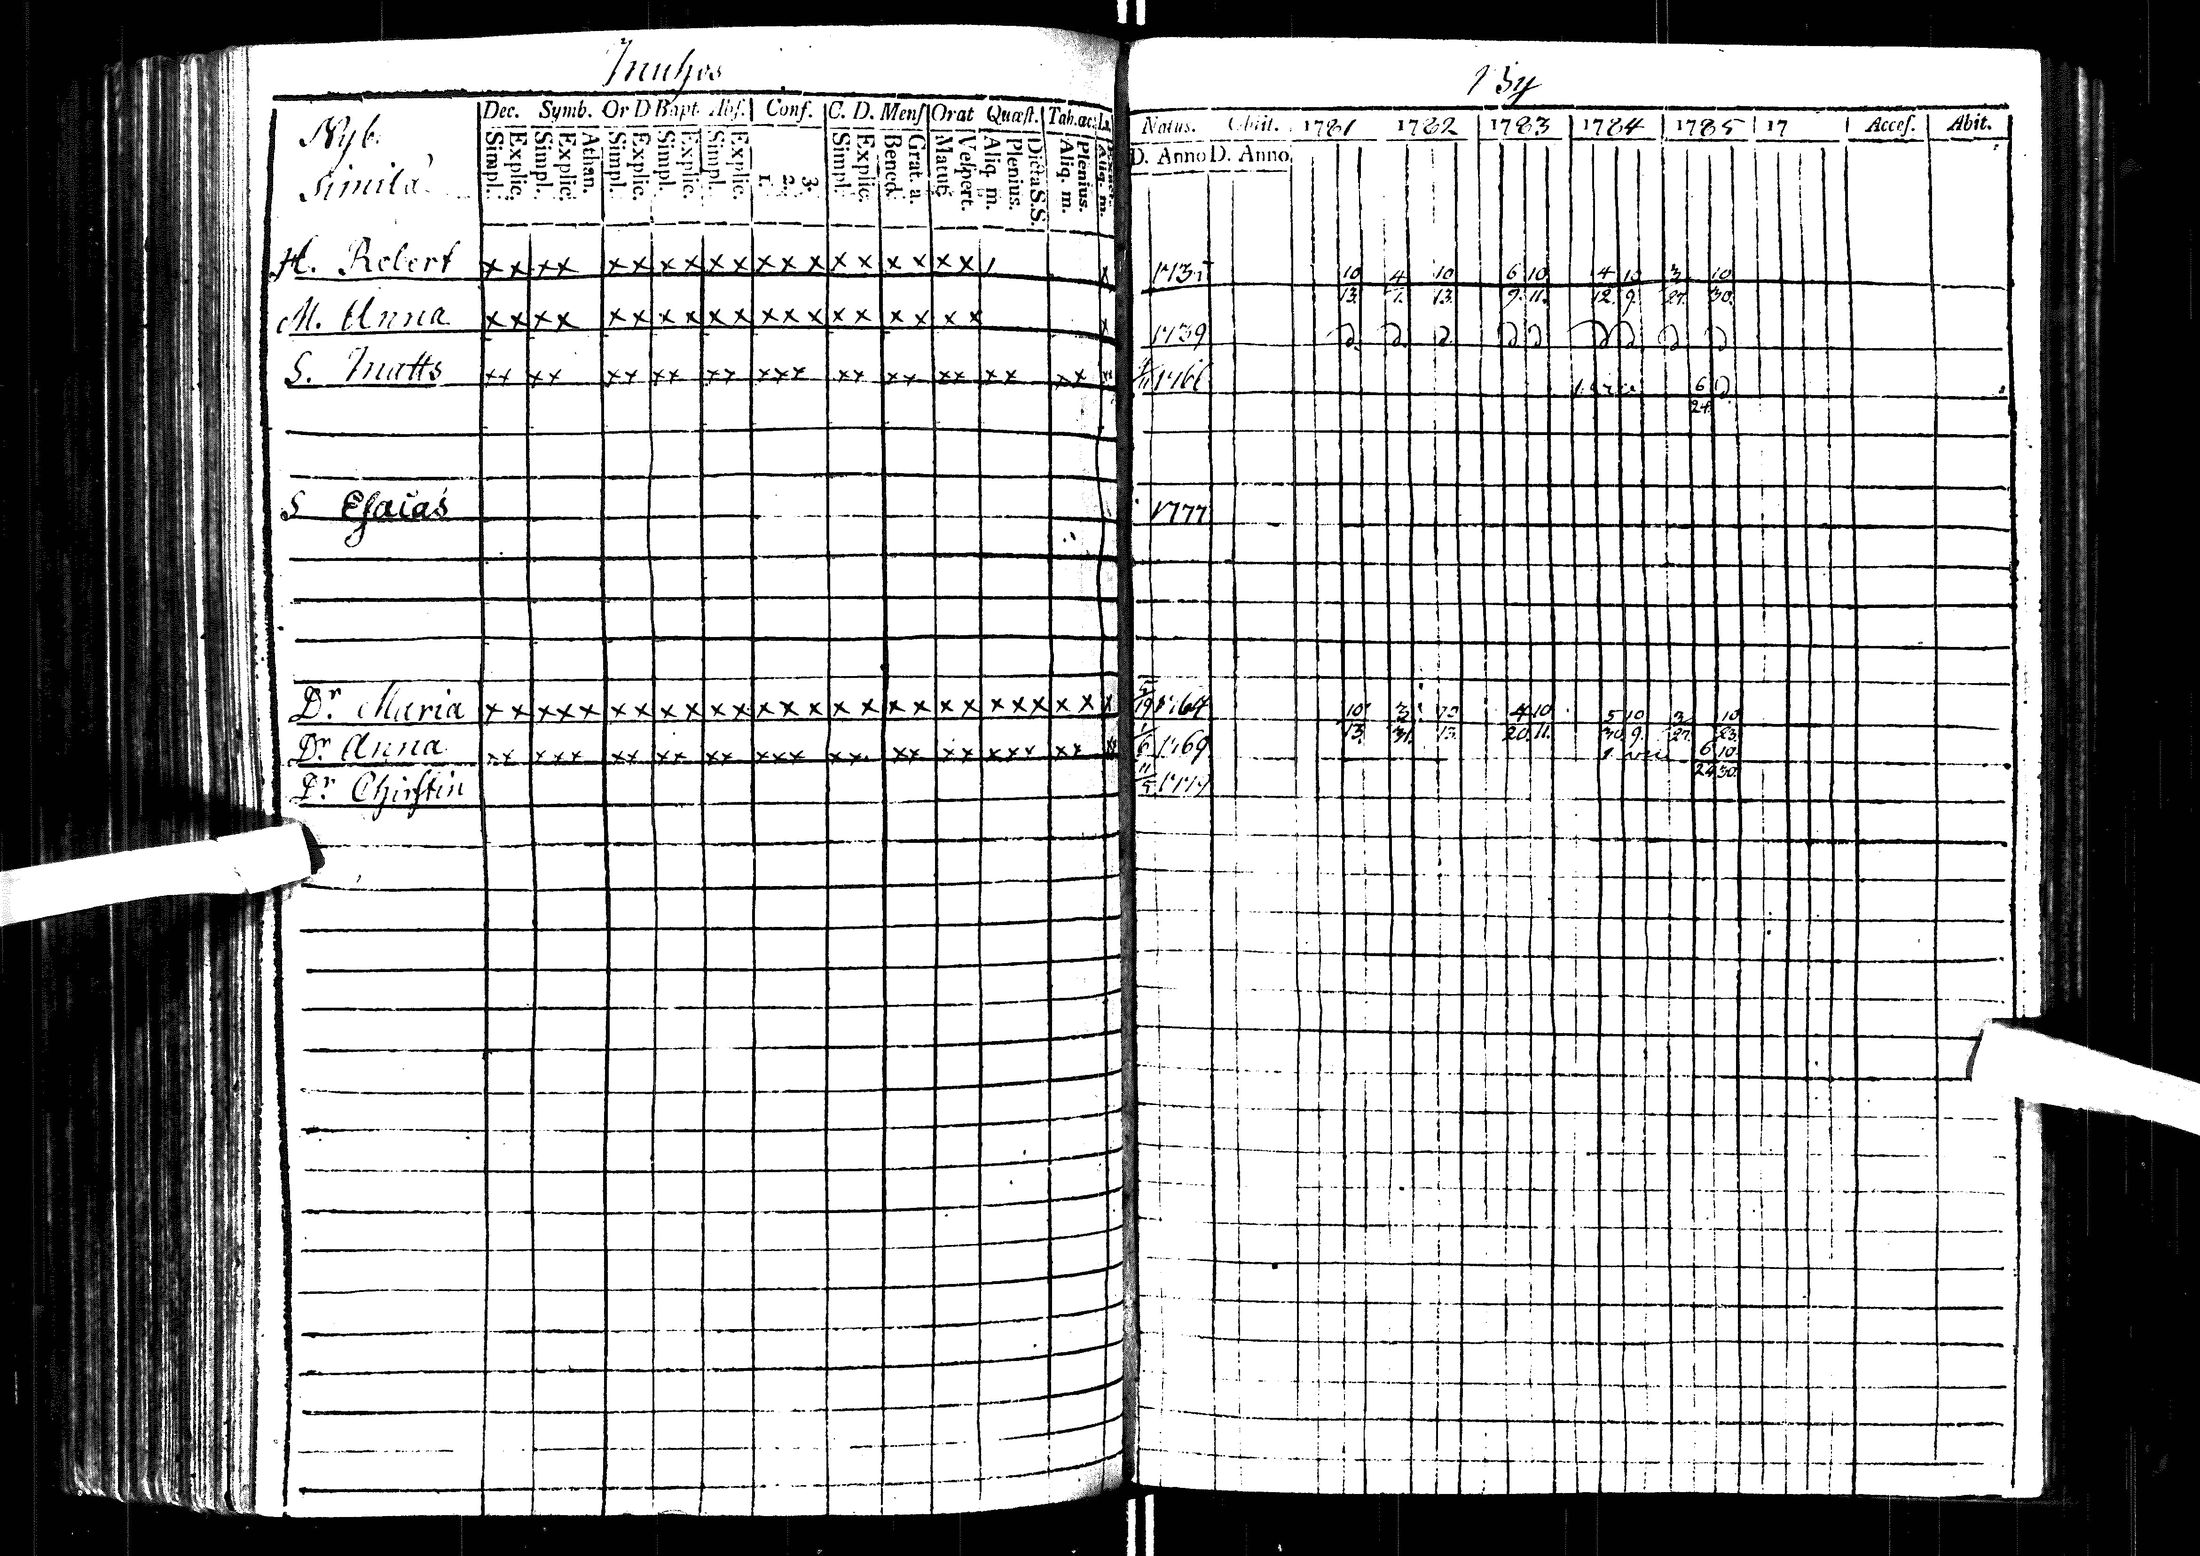 By
Dec. Symb. Or D Bapt. Abs. Conf. C. D. Mens Orat Quæst. Tab.
Simpl. Explic. Simpl. Explic. Athan. Simpl. Explic. Simpl. Explic. Simpl. Explic. 1. 2. 3. Simpl. Explic. Bened. Grat. a. Matut. Vespert. Aliq. m. Plenius. Dicta S.S. Aliq. m. Plenius. Aliq. m.
Natus. Obiit. 1781 1782 1783 1784 1785 17 Acces. Abit.
D. Anno D. Anno
Nyb.
Simila
H. Robert x x x x x x x x x x x x x x x x x x x x
10 4 10 6 10 4 10 3 10
13. 7. 13. 9. 11. 12. 9. 27. 30.
M. Anna x x x x x x x x x x x x x x x x x x x x 1739
S. Matts x x x x x x x x x x x x x x x x x x x x x x x x x
6
24
S Esaias 1777
Dr Maria x x x x x x x x x x x x x x x x x x x x x x x x x x x 5/19 1764
10 3 10 4 10 5 10 3 10
13. 31. 13. 20. 11. 30. 9. 27. 23.
Dr Anna x x x x x x x x x x x x x x x x x x x x x x x x x x x 1/6 1769
6 10
24 30
Dr Chirstin 11/5 1779